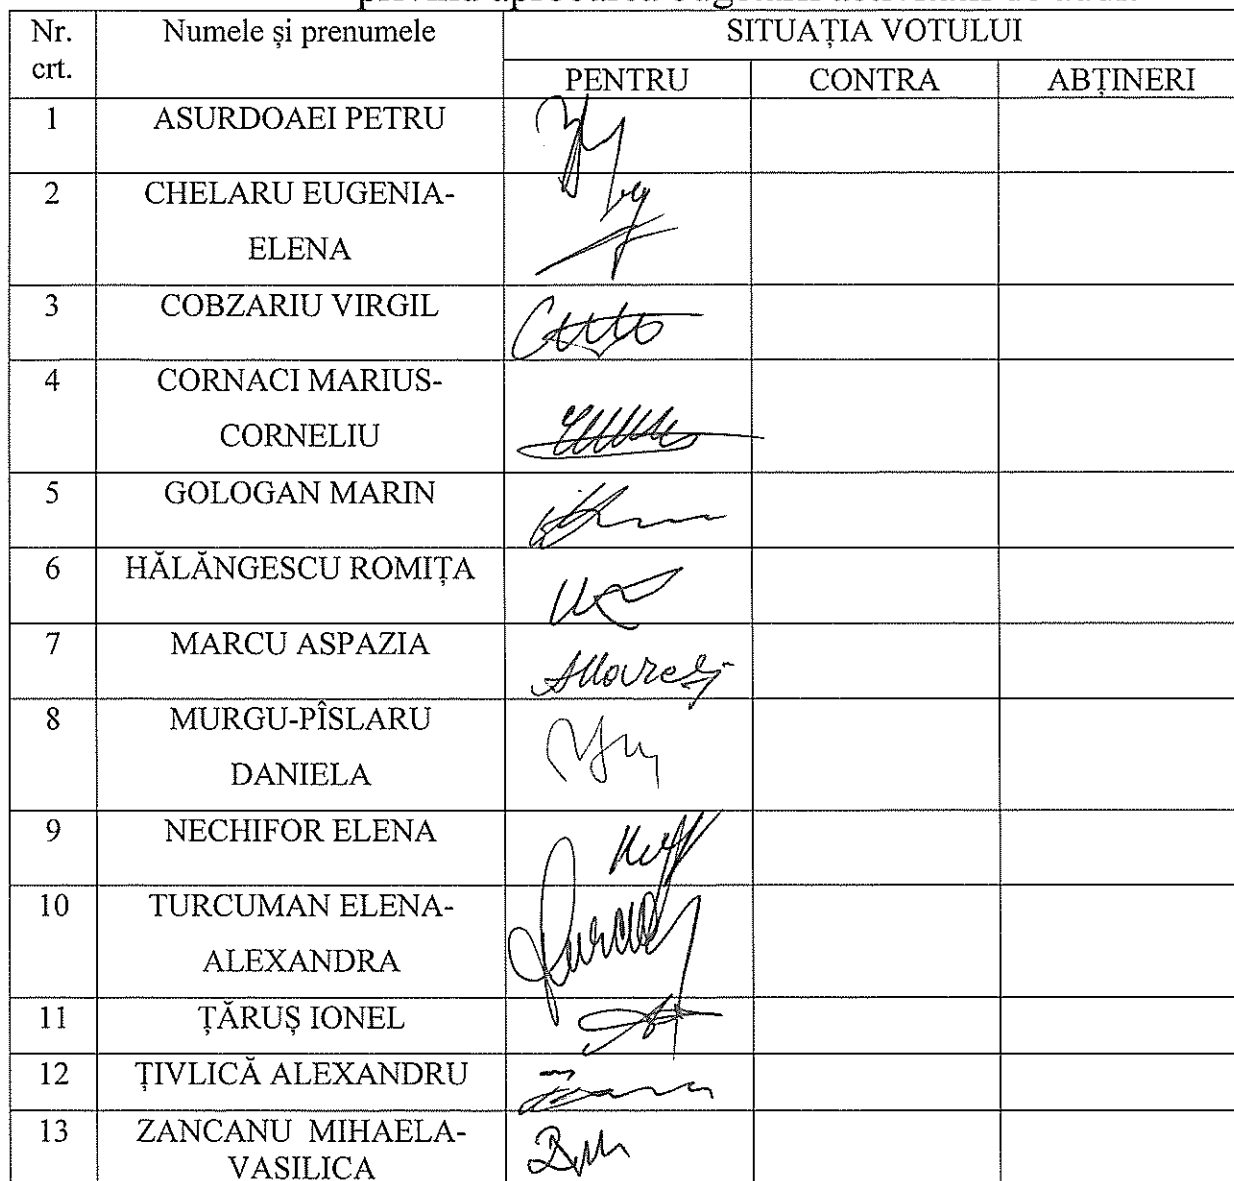 Nr. crt.
Numele și prenumele
SITUAȚIA VOTULUI
PENTRU
CONTRA
ABȚINERI
1 ASURDOAEI PETRU
2 CHELARU EUGENIA-
ELENA
3 COBZARIU VIRGIL
4 CORNACI MARIUS-
CORNELIU
5 GOLOGAN MARIN
6 HĂLĂNGESCU ROMIȚA
7 MARCU ASPAZIA
8 MURGU-PÎSLARU
DANIELA
9 NECHIFOR ELENA
10 TURCUMAN ELENA-
ALEXANDRA
11 ȚĂRUȘ IONEL
12 ȚIVLICĂ ALEXANDRU
13 ZANCANU MIHAELA-
VASILICA